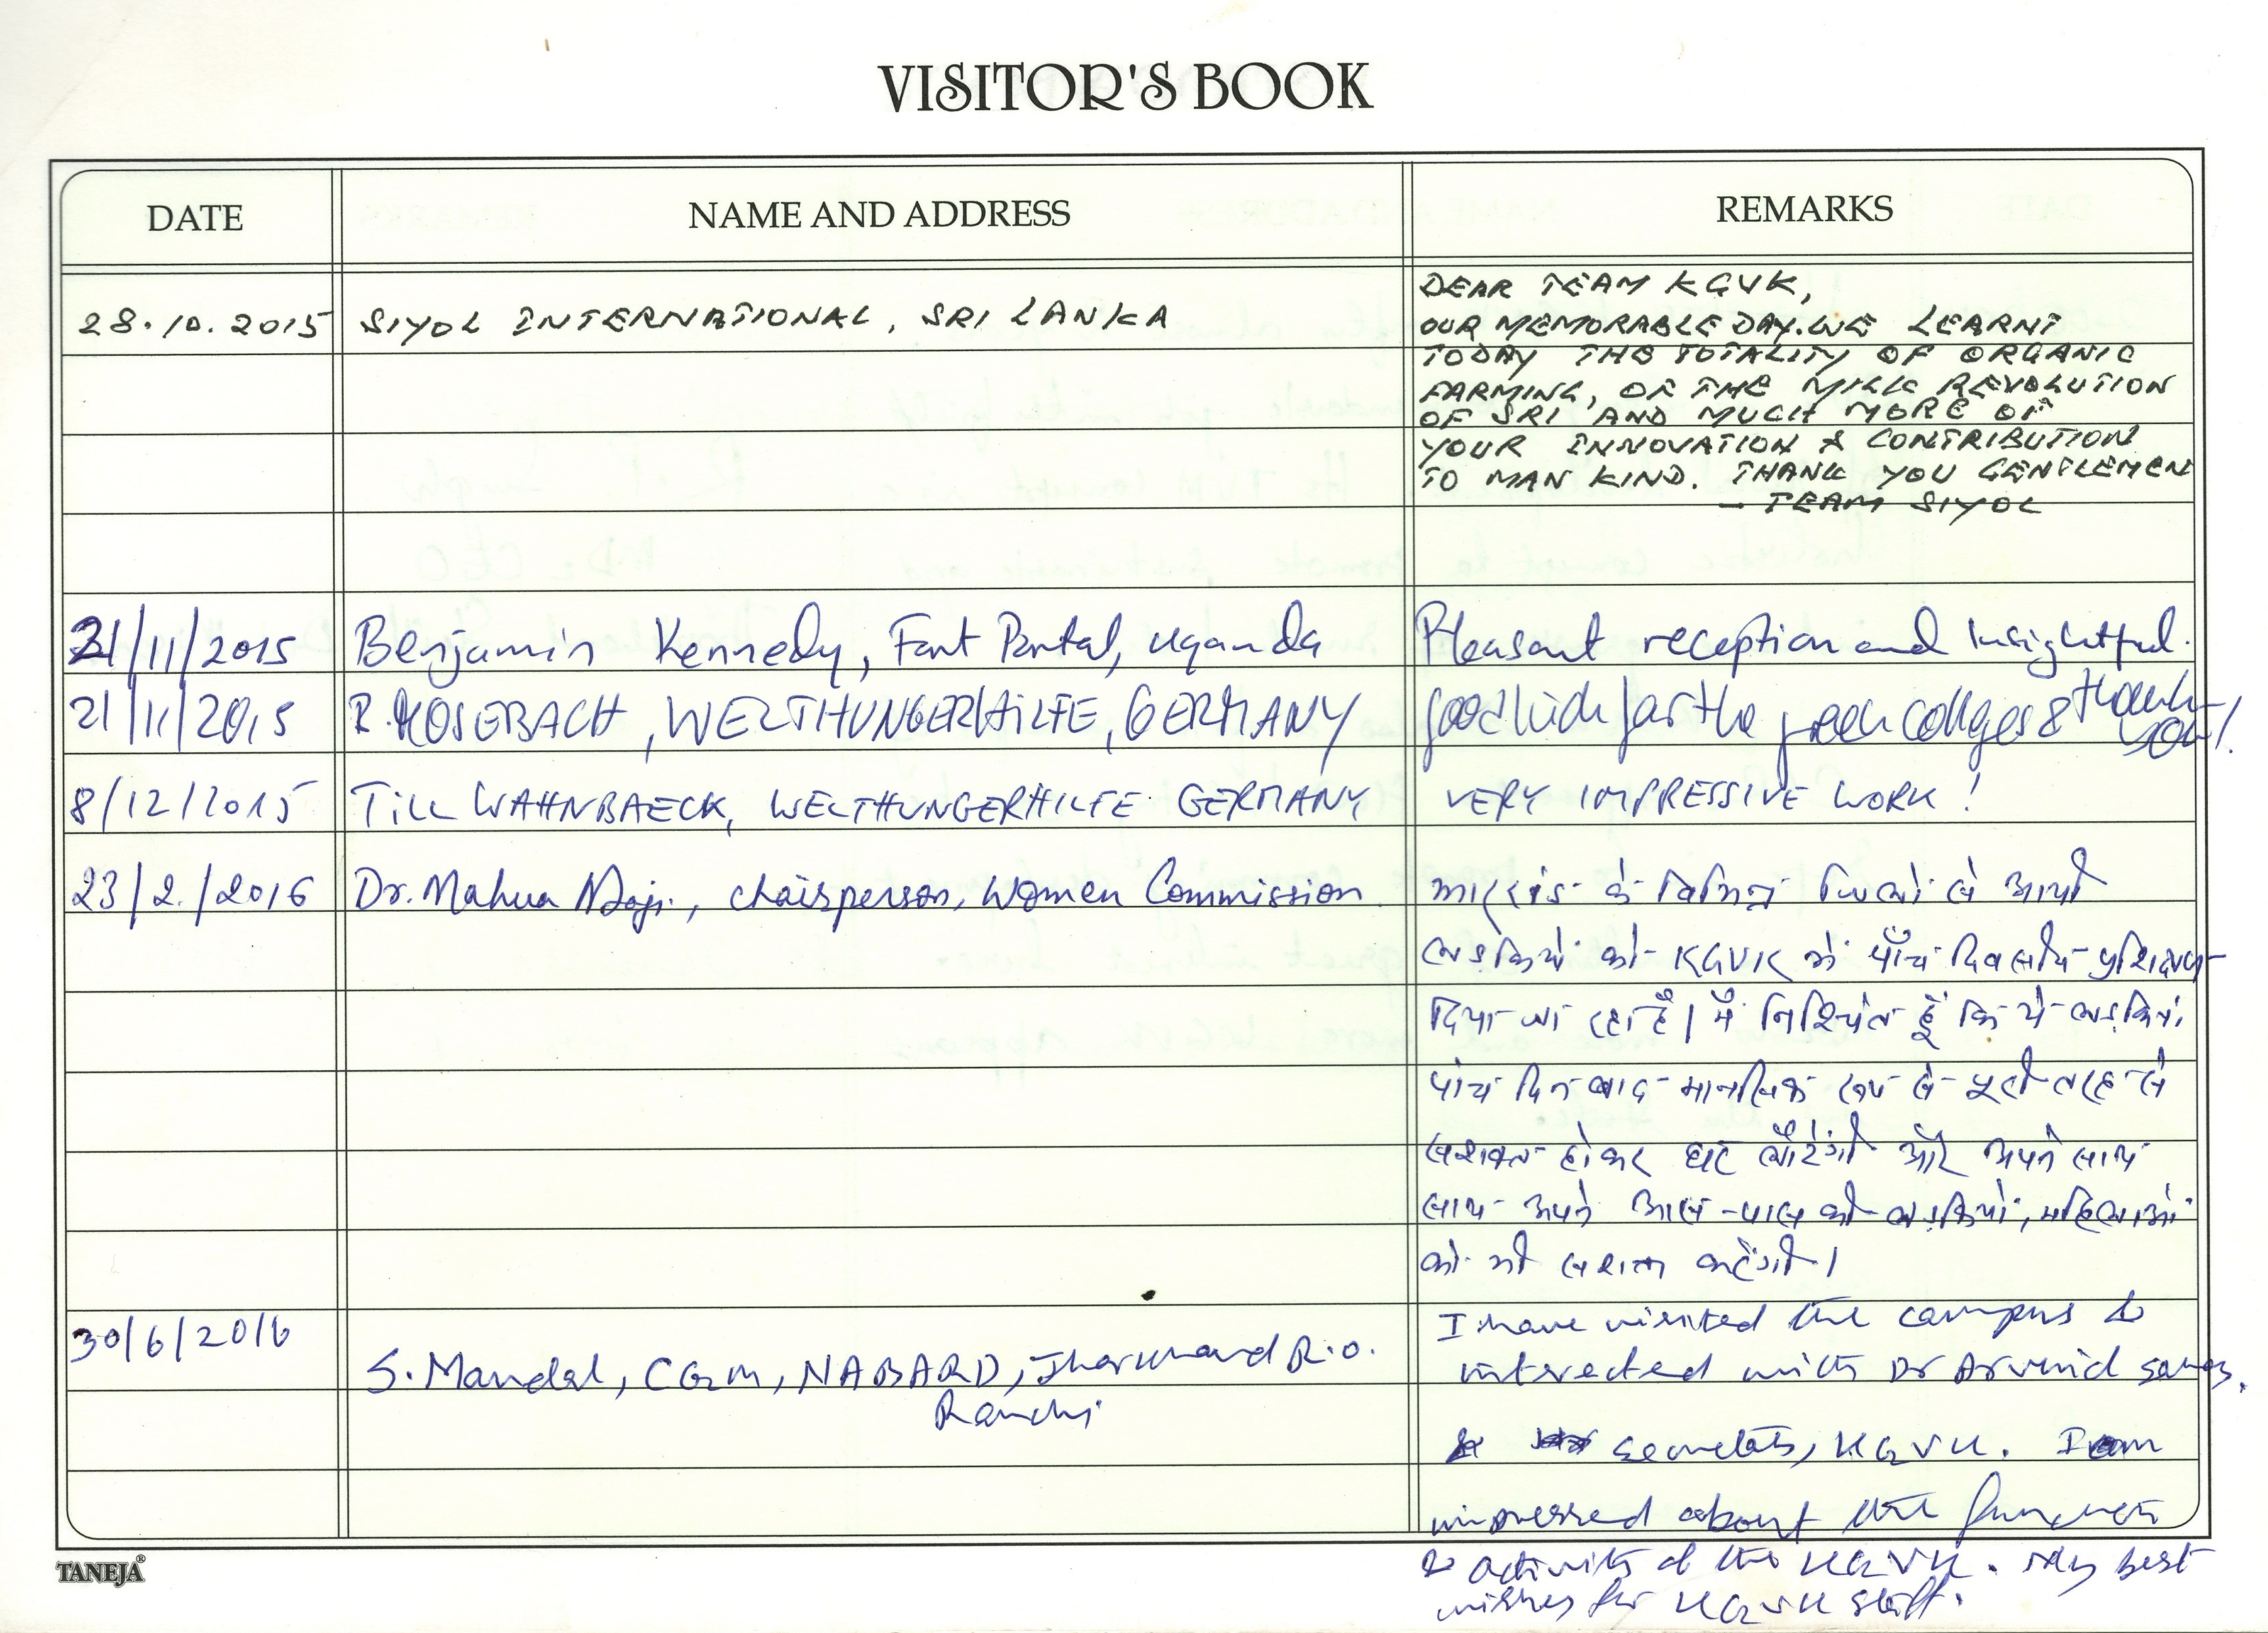 VISITOR'S BOOK
DATE NAME AND ADDRESS REMARKS
28.10.2015 SIYOL INTERNATIONAL, SRI LANKA
DEAR TEAM KGVK,
OUR MEMORABLE DAY. WE LEARNT
TODAY THE TOTALITY OF ORGANIC
FARMING, OF THE MILK REVOLUTION
OF SRI AND MUCH MORE OF
YOUR INNOVATION & CONTRIBUTION
TO MAN KIND. THANK YOU GENTLEMEN
- TEAM SIYOL
21/11/2015 Benjamin Kennedy, Fort Portal, Uganda Pleasant reception and Insightful.
21/11/2015 R. MOSEBACH, WELTHUNGERHILFE, GERMANY good luck for the green colleges & thank
you!
8/12/2015 TILL WAHNBAECK, WELTHUNGERHILFE GERMANY VERY IMPRESSIVE WORK!
23/2./2016 Dr. Mahua Maji, chairperson, Women Commission. झारखंड के विभिन्न जिलों से आयी
लड़कियों को KGVK में पाँच दिवसीय प्रशिक्षण
दिया जा रहा है। मैं निश्चिंत हूँ कि ये लड़कियां
पांच दिन बाद मानसिक रूप से पूरी तरह से
सशक्त होकर घर लौटेंगी और अपने साथ
साथ अपने आस-पास की लड़कियों, महिलाओं
को भी सशक्त करेंगी।
30/6/2016 S. Mandal, CGM, NABARD, Jharkhand R.O.
Ranchi
I have visited the campus &
interected with Dr Arvind
secretary, KGVK. I am
impressed about the function
& activity of the KGVK. My best
wishes for KGVK staff.
TANEJA®